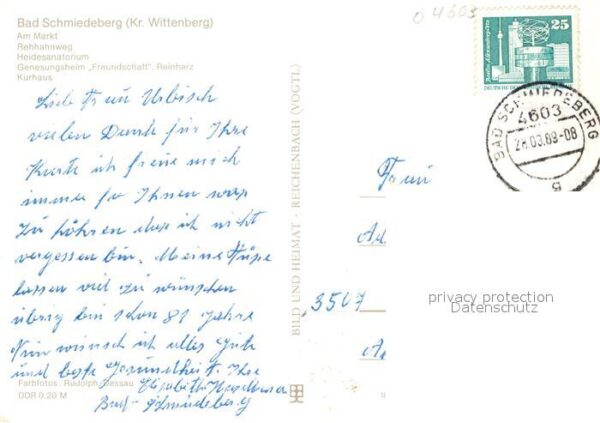 Bad Schmiedeberg (Kr. Wittenberg)
Am Markt
Rehhahnweg
Heidesanatorium
Genesungsheim „Freundschaft", Reinharz
Kurhaus
Liebe Frau Urbisch
vielen Dank für Ihre
Karte ich freue mich
immer fo Ihnen was
zu höhren das ich nicht
vergessen bin. Meine Füße
lassen viel zu wünschen
übrig bin schon 81 Jahre
Nun wünsch ich alles Gute
und beste Gesundheit. Ihre
Elisabeth
Bad-Schmiedeberg
Farbfotos: Rudolph, Dessau
DDR 0,20 M
BILD UND HEIMAT · REICHENBACH (VOGTL)
0 4603
25
Berlin, Alexanderplatz
DEUTSCHE DE
BAD SCHMIEDEBERG
4603
28.03.89-08
Frau
Ad
3507
A
privacy protection
Datenschutz